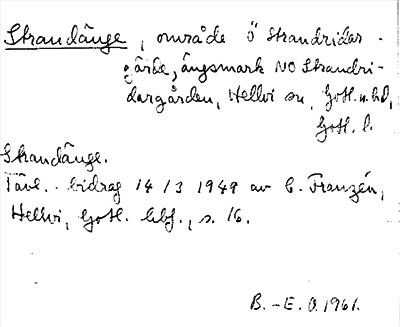 Strandänge, område Ö Strandridar-
gärde, ängsmark NO Strandri-
dargården, Hellvi sn, Gotl. n. hd,
Gotl. l.
Strandänge.
Tävl. bidrag 14/3 1949 av C. Franzén,
Hellvi, Gotl. , s. 16.
B.-E. O. 1961.